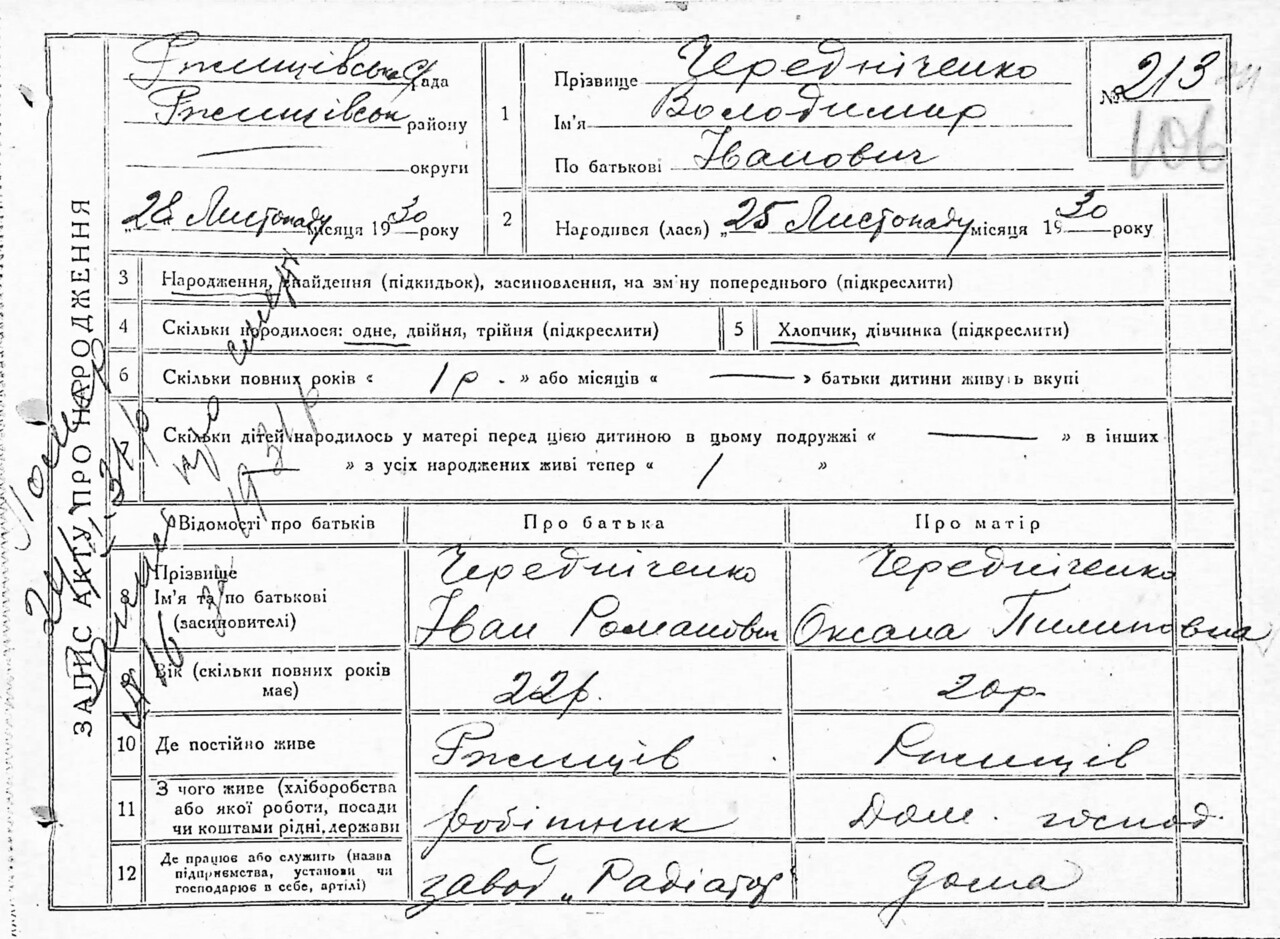 ЗАПИС АКТУ ПРО НАРОДЖЕННЯ
Ржищівська с/рада
Ржищівськ району
округи
„28" Листопаду місяця 1930 року
1
Прізвище Чередніченко
Ім'я Володимир
По батькові Іванович
№ 213
106
2
Народився (лася) „25 Листопаду місяця 1930 року
3 Народження, знайдення (підкидьок), засиновлення, на зміну попереднього (підкреслити)
4 Скільки народилося: одне, двійня, трійня (підкреслити)
5 Хлопчик, дівчинка (підкреслити)
6 Скільки повних років « 1 р. » або місяців « — » батьки дитини живуть вкупі
7 Скільки дітей народилось у матері перед цією дитиною в цьому подружжі « — » в інших
— » з усіх народжених живі тепер « 1 »
Відомості про батьків Про батька Про матір
8 Прізвище
Ім'я та по батькові
(засиновителі)
Чередніченко
Іван Романович
Чередніченко
Оксана Пилиповна
9 Вік (скільки повних років
має)
22р.
20р.
10 Де постійно живе Ржищів Ржищів
11 З чого живе (хліборобства
або якої роботи, посади
чи коштами рідні, держави
робітник
Дом. господ.
12 Де працює або служить (назва
підприємства, установи чи
господарює в себе, артілі)
завод „Радіатор"
дома
про смерть
1931р
№ 16